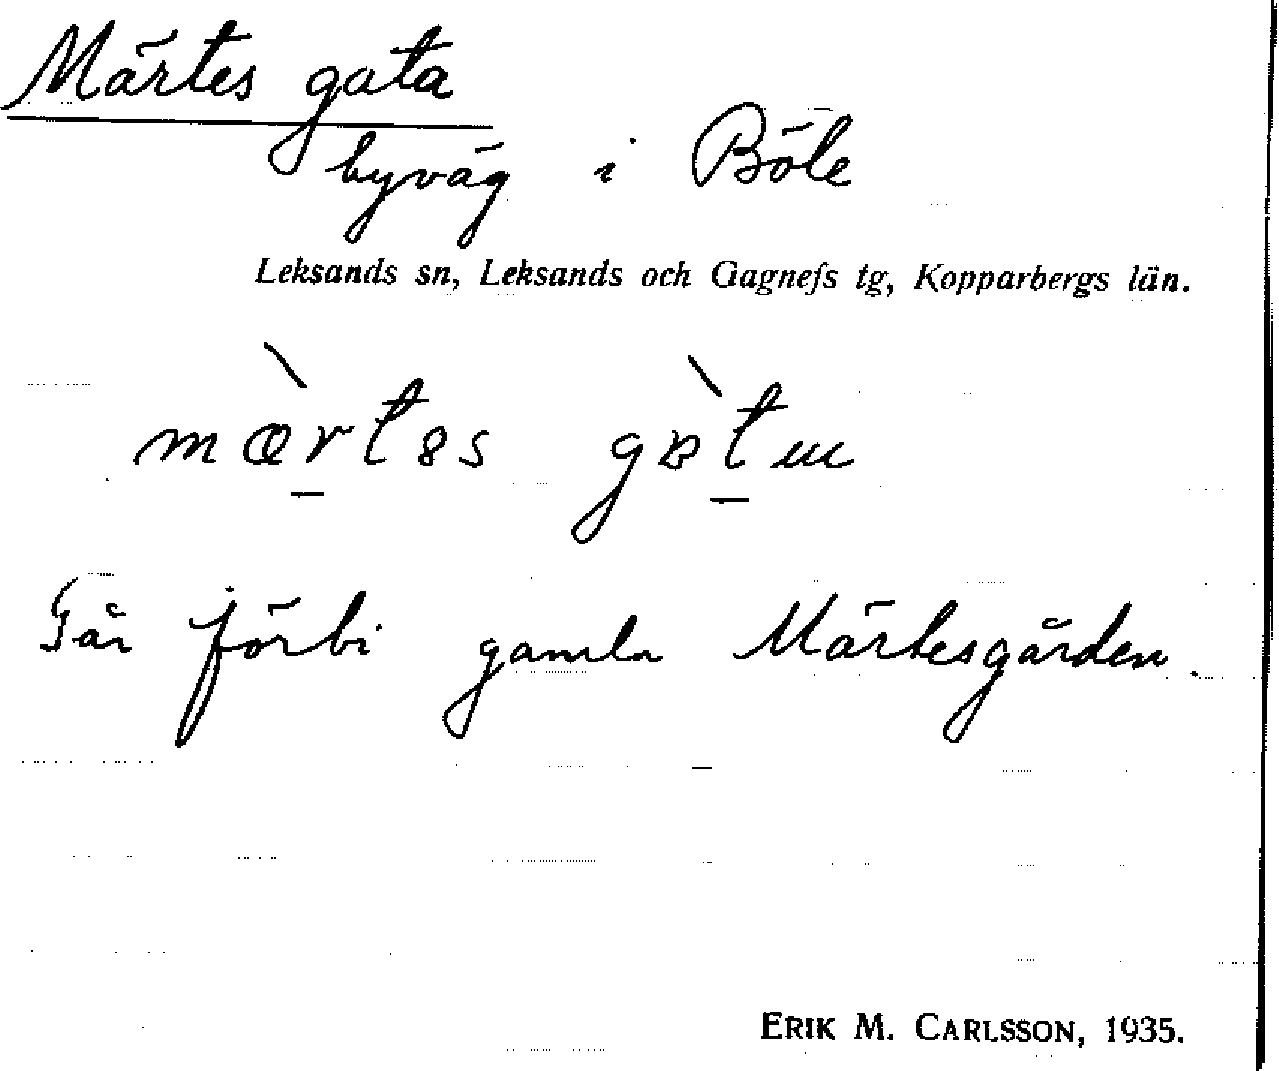 Märtes gata
byväg i Böle
Leksands sn, Leksands och Gagnefs tg, Kopparbergs län.
Går förbi gamla Märtesgården.
ERIK M. CARLSSON, 1935.